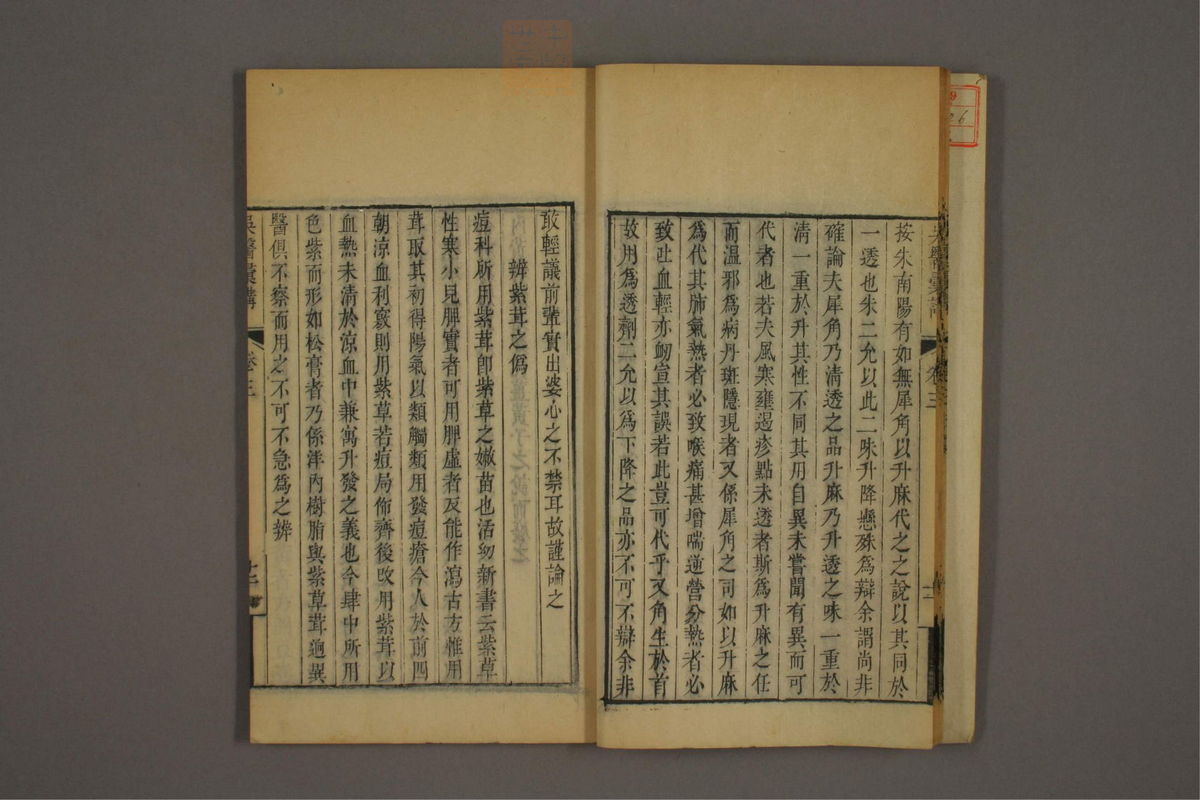 按朱南陽有如無犀角以升麻代之之說以其同於
一透也朱二允以此二味升降懸殊為辯余謂尚非
確論夫犀角乃清透之品升麻乃升透之味一重於
清一重於升其性不同其用自異未嘗聞有異而可
代者也若夫風寒壅遏疹點未透者斯為升麻之任
而溫邪為病丹斑隱現者又係犀角之司如以升麻
為代其肺氣熱者必致喉痛甚增喘逆營分熱者必
致吐血輕亦衂宣其誤若此豈可代乎又角生於首
故用為透劑二允以為下降之品亦不可不辯余非
卷三
敢輕議前輩實出婆心之不禁耳故謹論之
辨紫茸之僞
痘科所用紫茸卽紫草之嫩苗也活幼新書云紫草
性寒小兒脾實者可用脾虛者反能作瀉古方惟用
茸取其初得陽氣以類觸類用發痘瘡今人於前四
朝涼血利竅則用紫草若痘局佈齊後改用紫茸以
血熱未清於涼血中兼寓升發之義也今肆中所用
色紫而形如松膏者乃係洋內樹脂與紫草茸逈異
醫俱不察而用之不可不急為之辨
吳醫彙講
卷三
十二